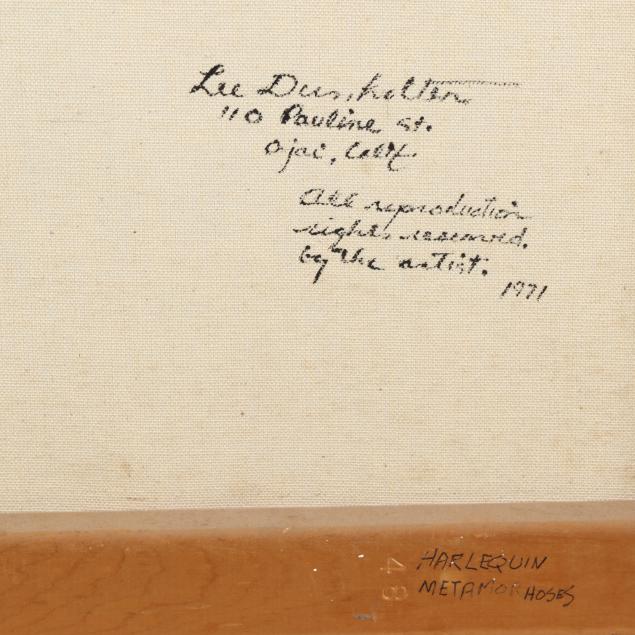 Lee Dusholten
110 Pauline St.
Ojai, Calif.
All reproduction
rights reserved.
by the artist.
1971
48
HARLEQUIN
METAMORHOSES